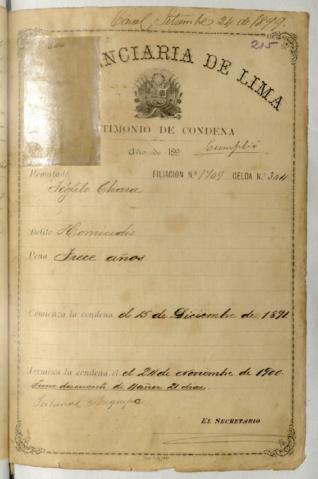 Setiembre 24 de 1899.
215
NCIARIA DE LIMA
TIMONIO DE CONDENA
Año de 189
Cumplió
Rematado
FILIACION N.º 1709 CELDA N.º 304
Chara
Delito Homicidio
Pena Trece años
Comienza la condena el 15 de Diciembre de 1891
Termina la condena el el 24 de noviembre de 1900
descuento de 4 años 21 dias
Tribunal Arequipa
EL SECRETARIO